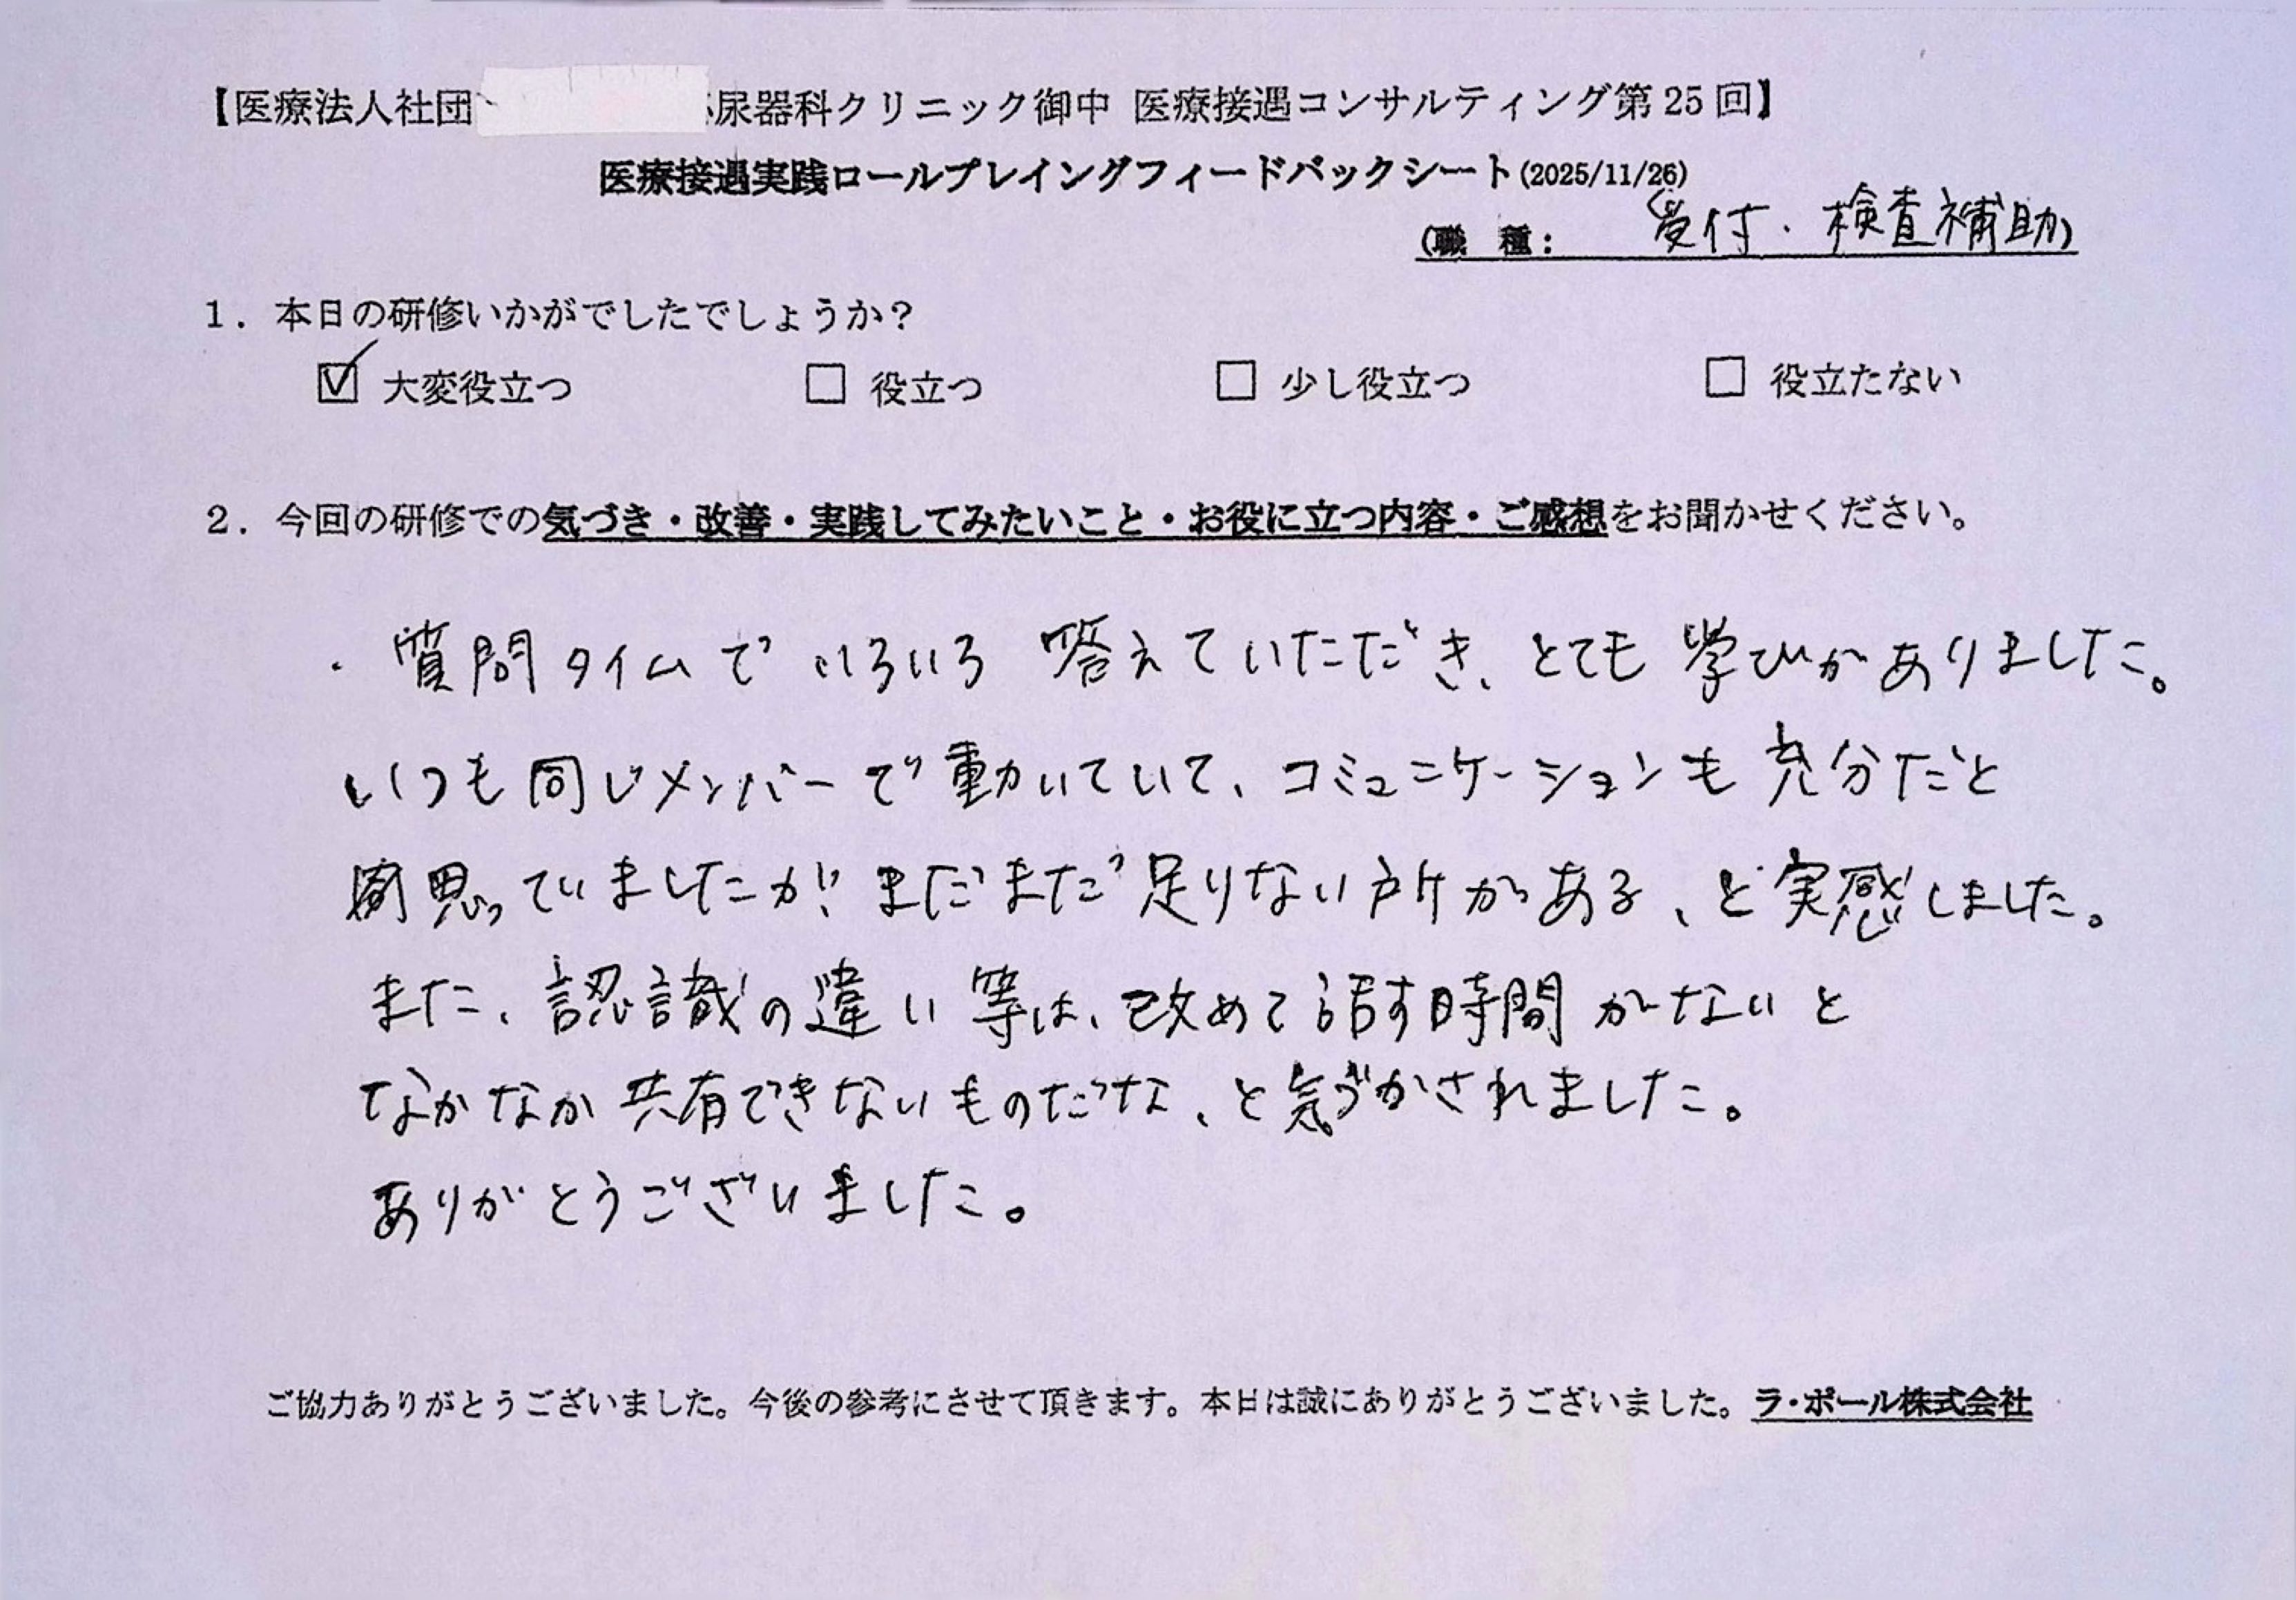 【医療法人社団 尿器科クリニック御中 医療接遇コンサルティング第25回】
医療接遇実践ロールプレイングフィードバックシート(2025/11/26)
(職 種: 受付・検査補助)
1. 本日の研修いかがでしたでしょうか?
☑ 大変役立つ □ 役立つ □ 少し役立つ □ 役立たない
2. 今回の研修での気づき・改善・実践してみたいこと・お役に立つ内容・ご感想をお聞かせください。
・質問タイムでいろいろ答えていただき、とても学びがありました。
いつも同じメンバーで動いていて、コミュニケーションも充分だと
思っていましたが、まだまだ足りない所がある、と実感しました。
また、認識の違い等は、改めて話す時間がないと
なかなか共有できないものだな、と気づかされました。
ありがとうございました。
ご協力ありがとうございました。今後の参考にさせて頂きます。本日は誠にありがとうございました。ラ・ポール株式会社